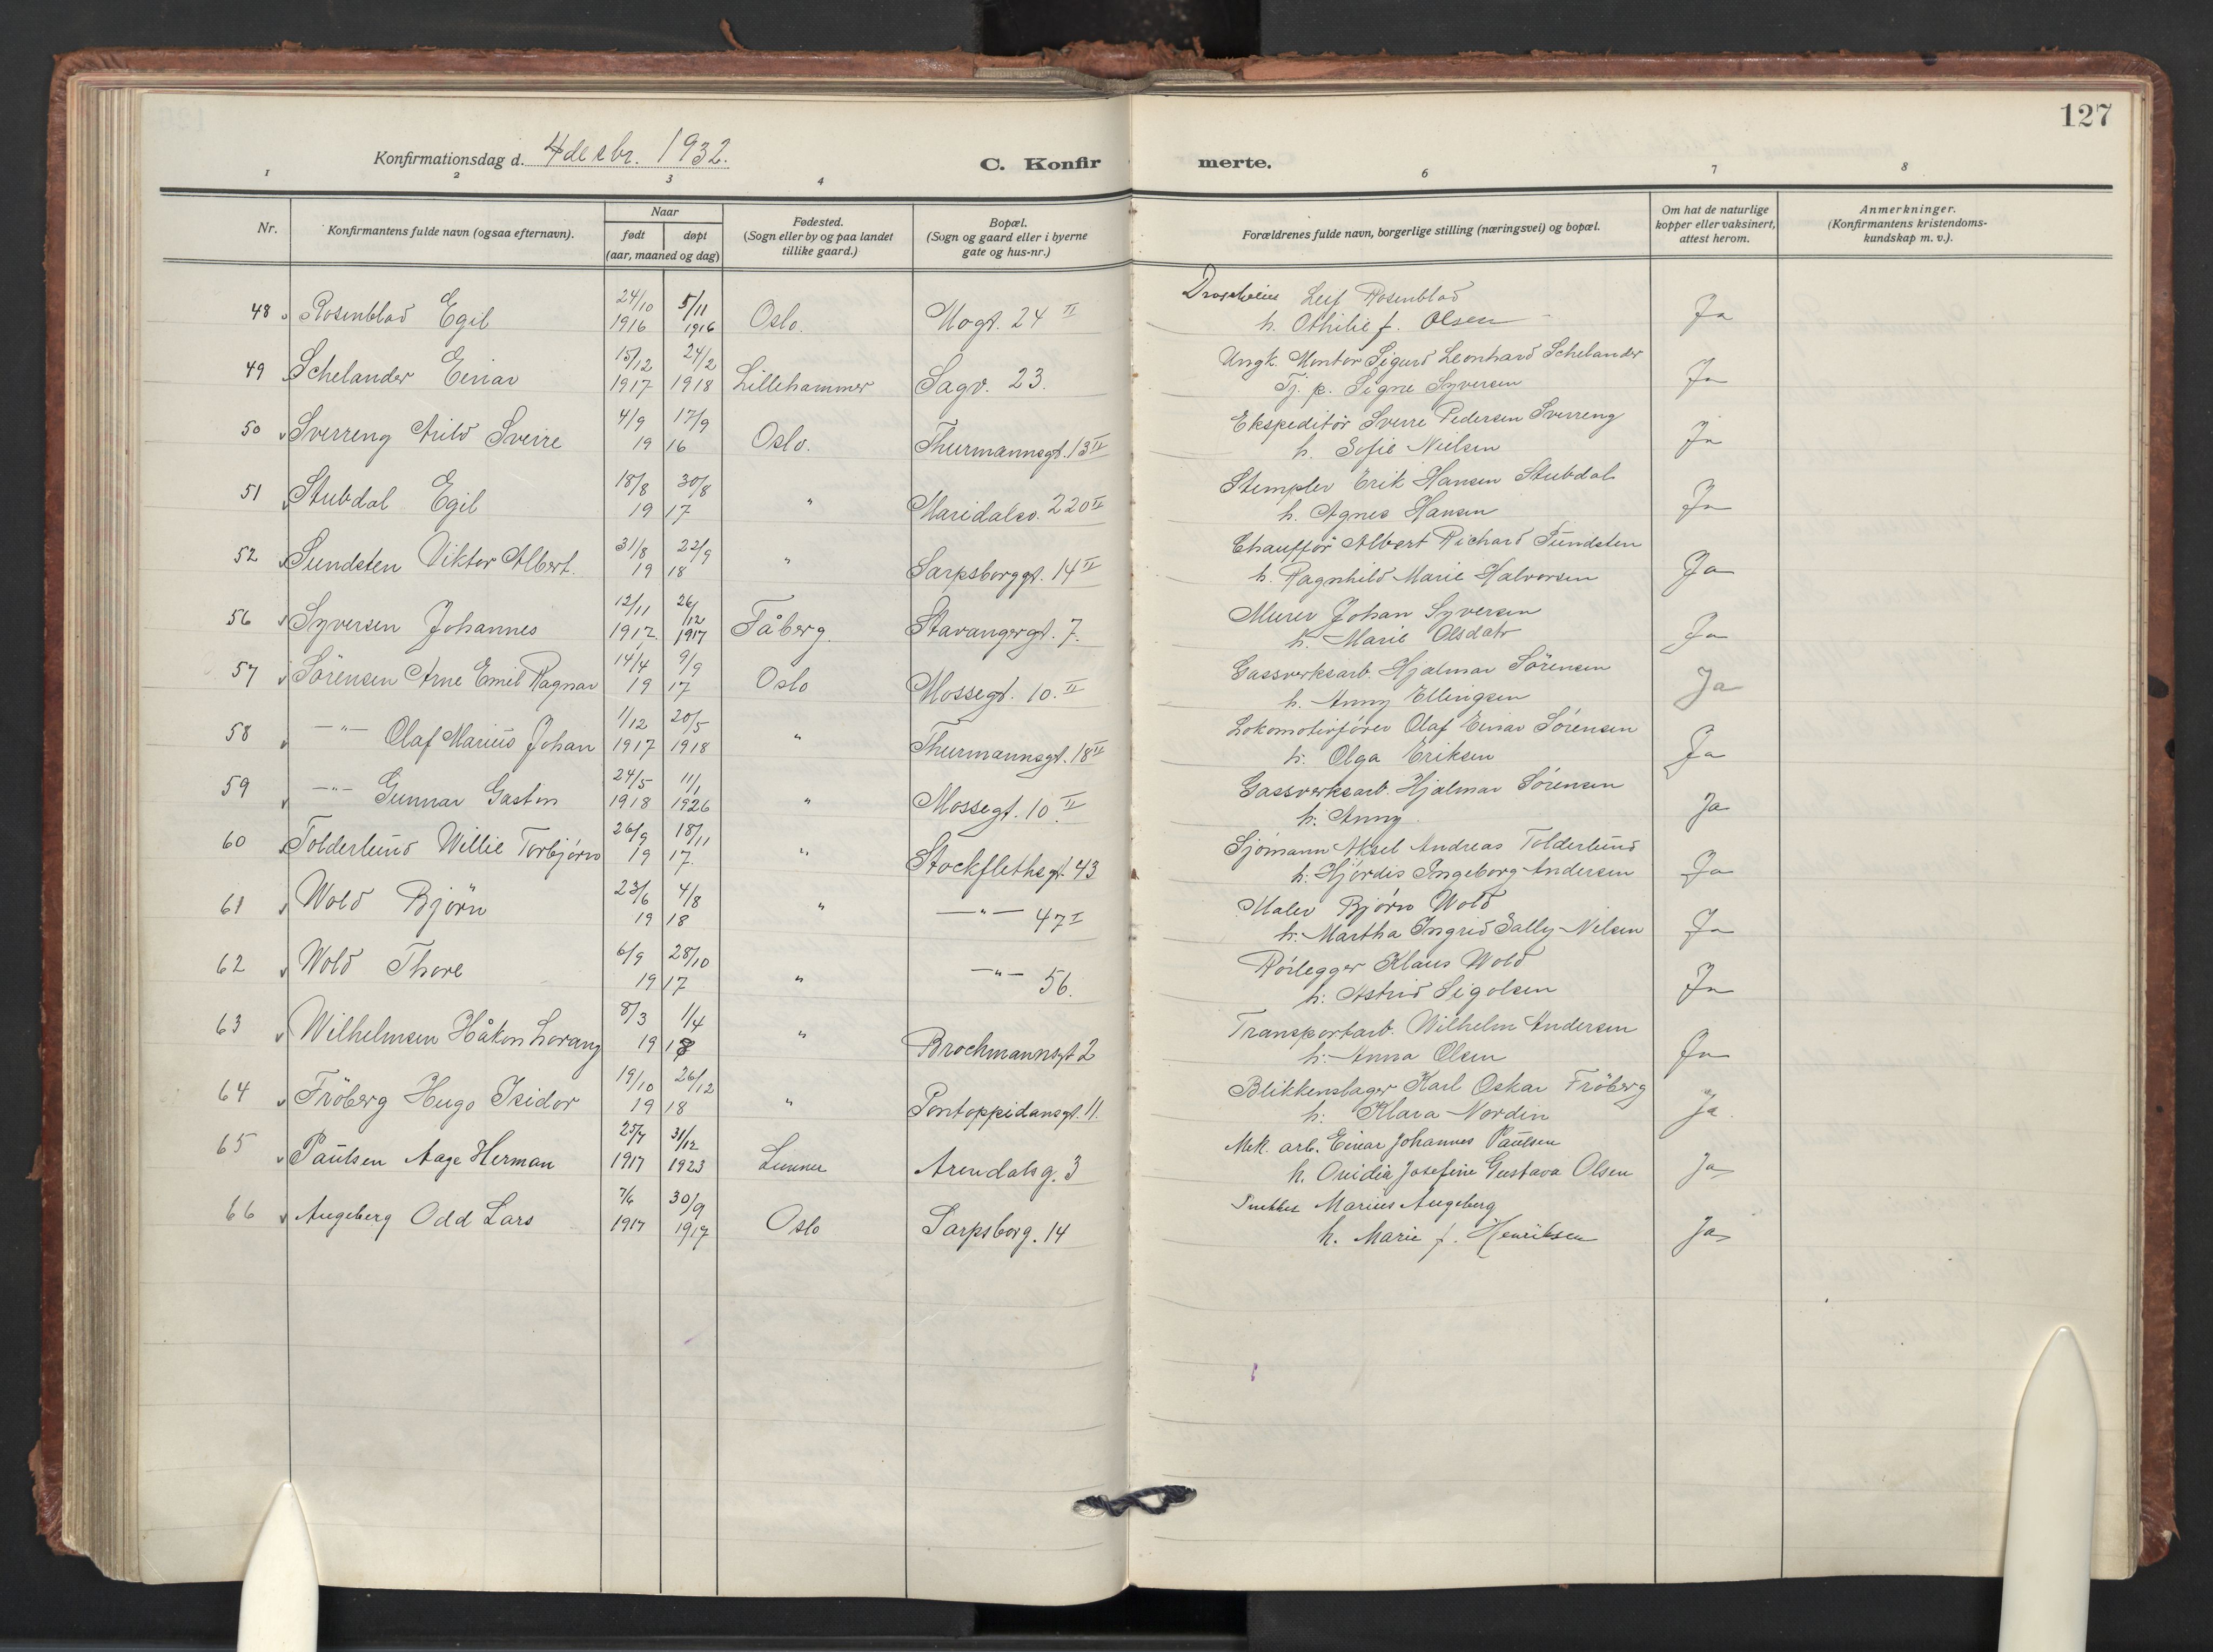 127
Konfirmationsdag d. 4 decbr. 1932.
C. Konfirmerte.
1 2 3 4 6 7 8
Nr.
Konfirmantens fulde navn (ogsaa efternavn).
Naar
født døpt
(aar, maaned og dag)
Fødested.
(Sogn eller by og paa landet
tillike gaard.)
Bopæl.
(Sogn og gaard eller i byerne
gate og hus-nr.)
Forældrenes fulde navn, borgerlige stilling (næringsvei) og bopæl.
Om hat de naturlige
kopper eller vaksinert,
attest herom.
Anmerkninger.
(Konfirmantens kristendoms-
kundskap m. v.).
48 Rosenblad Egil 24/10 1916 5/11 1916 Oslo. Mogt. 24 II Leif Rosenblad
h. Othilie f. Olsen Ja
49 Schelander Einar 15/12 1917 24/2 1918 Lillehammer Sagv. 23. Ungk. Montør Sigurd Leonhard Schelander
Tj. p. Signe Syversen Ja
50 Sverreng Arild Sverre 4/9 17/9 1916 Oslo. Thurmannsgt. 13 II Ekspeditör Sverre Pedersen Sverreng
h. Sofie Nielsen Ja
51 Stubdal Egil 18/8 30/8 1917 " Maridalsv. 220 II Stempler Erik Hansen Stubdal
h. Agnes Hansen Ja
52 Sundsten Viktor Albert. 31/8 22/9 1918 " Sarpsborggt. 14 II Chauffør Albert Richard Sundsten
h. Ragnhild Marie Halvorsen Ja
56 Syversen Johannes 12/11 1917. 26/12 1917 Fåberg. Stavangergt. 7. Murer Johan Syversen
h. Marie Olsdatr Ja
57 Sörensen Arne Emil Ragnar 14/4 9/9 1917 Oslo Mossegt. 10. II Gassverksarb. Hjalmar Sörensen
h. Anny Ellingsen Ja
58 —"— Olaf Marius Johan 1/12 1917 20/5 1918 " Thurmannsgt. 18 II Lokomotivfører Olaf Einar Sörensen
h. Olga Eriksen Ja
59 —"— Gunnar Gaston 24/5 1918 11/1 1926 " Mossegt. 10. II Gassverksarb. Hjalmar Sörensen
h. Anny Ja
60 Tolderlund Willie Torbjørn 26/9 18/11 1917. " Stockflethsgt. 43 Sjömann Aksel Andreas Tolderlund
h. Hjördis Ingeborg Andersen Ja
61 Wold Björn 23/6 4/8 1918 " —"— 47 I Maler Bjørn Wold
h. Martha Ingrid Sally Nilsen Ja
62 Wold Thore 6/9 28/10 1917 " —"— 56. Rörlegger Klaus Wold
h. Astrid Sigolsen Ja
63 Wilhelmsen Håkon Lorang 8/3 1/4 1918 " Brochmannsgt 2 Transportarb. Wilhelm Andersen
h. Anna Olsen Ja
64 Fröberg Hugo Isidor 19/10 26/12 1918 " Pontoppidansgt. 11. Blikkenslager Karl Oskar Fröberg
h. Klara Nordin Ja.
65 Paulsen Aage Herman 25/7 1917 31/12 1923 Lunner Arendalsg. 3 Mek. arb. Einar Johannes Paulsen
h. Ovidia Josefine Gustava Olsen Ja
66 Augeberg Odd Lars 7/6 1917 30/9 1917 Oslo Sarpsborg. 14 Marius Augeberg
h. Marie f. Henriksen Ja